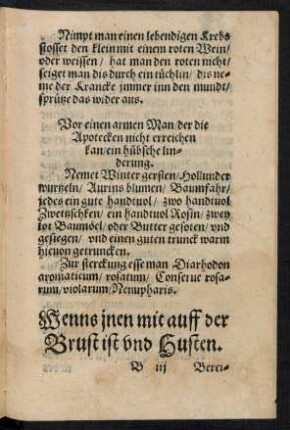 Nimpt man einen lebendigen Krebs
stosset den klein mit einem roten Wein/
oder weissen/ hat man den roten nicht/
seiget man dis durch ein tüchlin/ dis ne-
me der Krancke jmmer inn den mundt/
sprütze das wider aus.
Vor einen armen Man/ der die
Apotecken nicht erreichen
kan/ ein hübsche lin-
derung.
Nemet Winter gersten/ Hollunder
wurtzeln/ Aurins blumen/ Baumfahr/
jedes ein gute handtuol/ zwo handtuol
Zwetzschken/ ein handtuol Rosin/ zwey
lot Baumöel/ oder Butter gesoten/ vnd
gesiegen/ vnd einen guten trunck warm
hieuon getruncken.
Zur sterckung esse man Diarhodon
aromaticum/ rosatum/ Conserue rosa-
rum/ violarum/ Nenupharis.
Wenns jnen mit auff der
Brust ist vnd Husten.
B iij Berei-